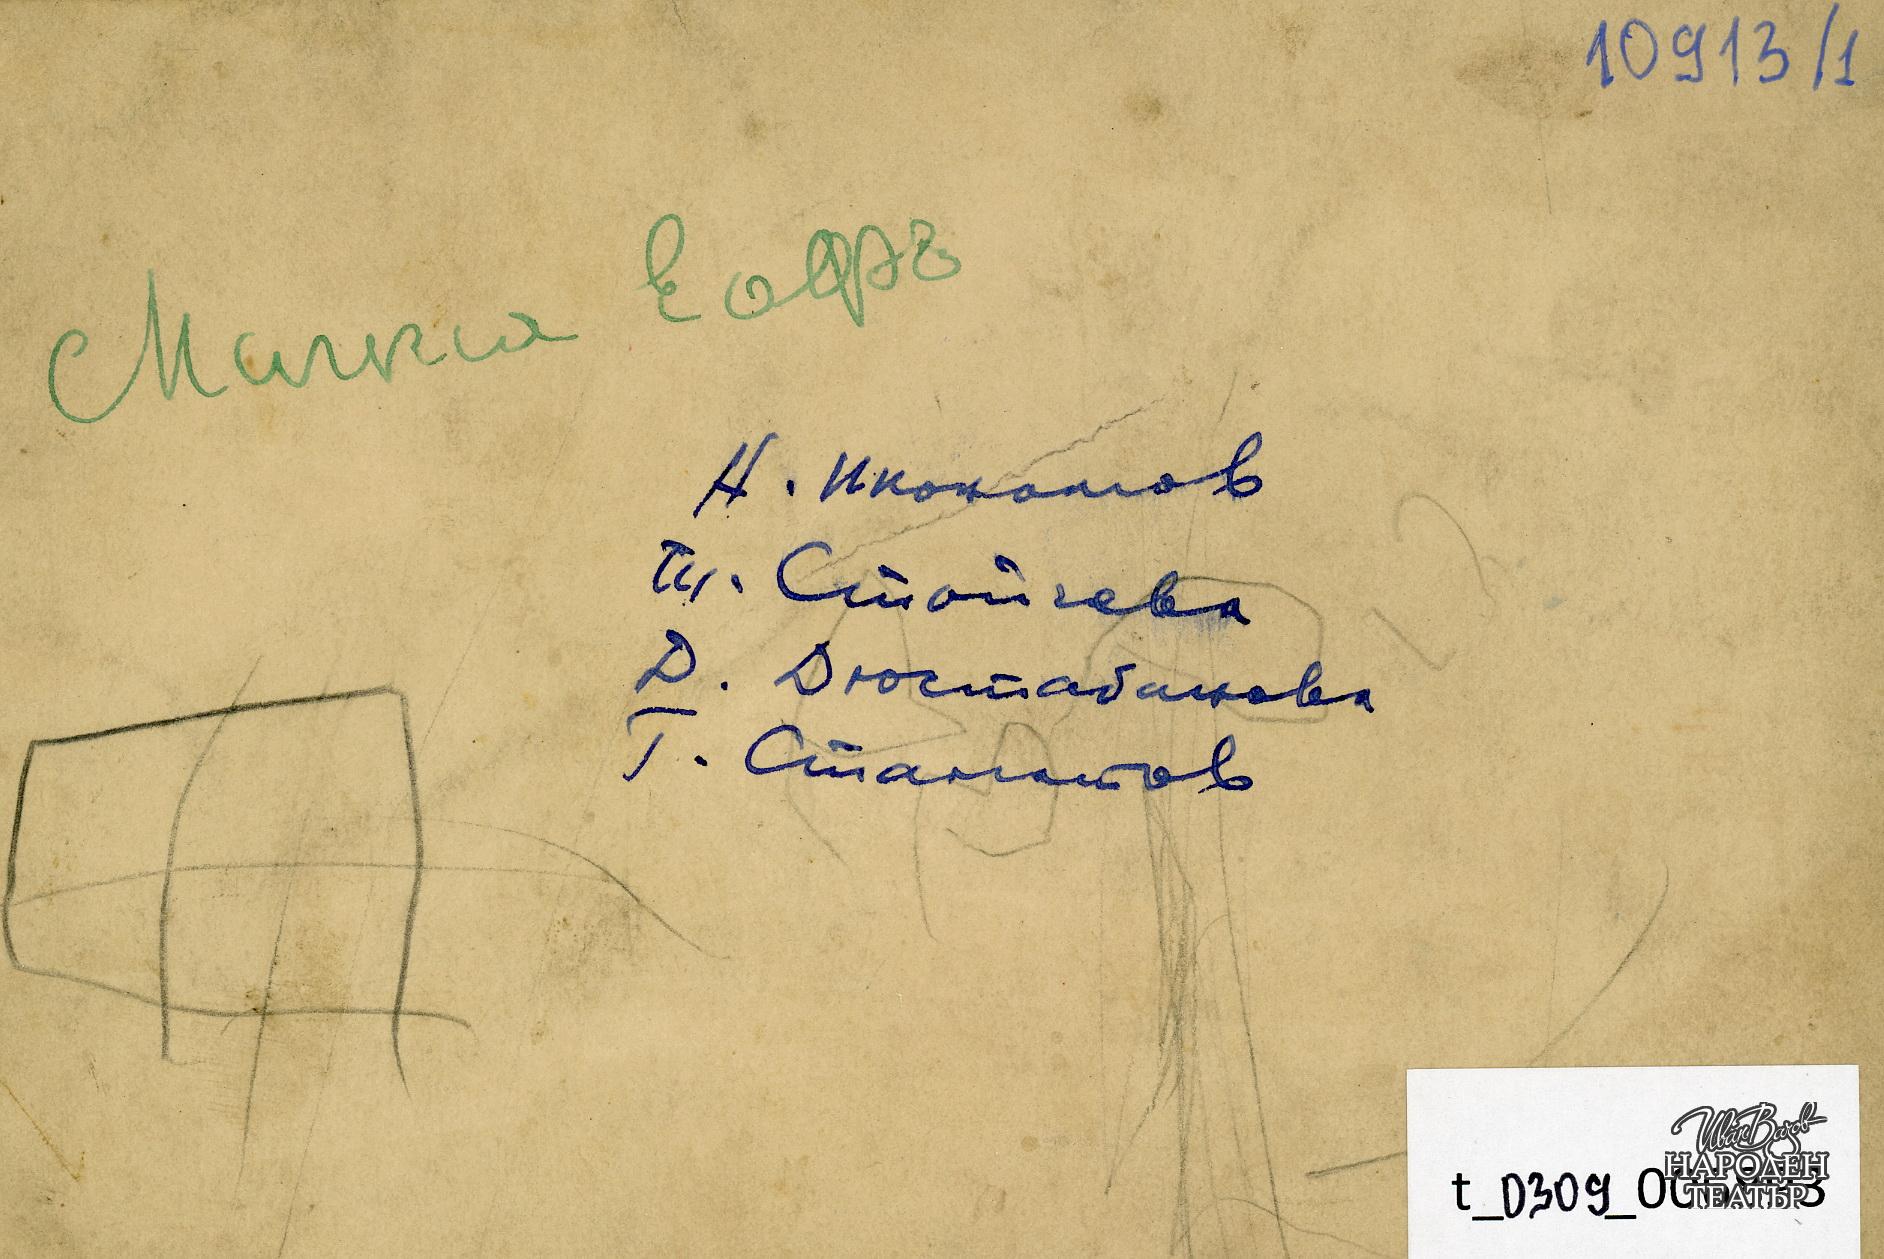 10913/1
Малкия Еофъ
Н. Икономов
Т. Стойчева
Д. Дюстабанова
Г. Стаматов
Иван Вазов
НАРОДЕН
ТЕАТЪР
t_D309_